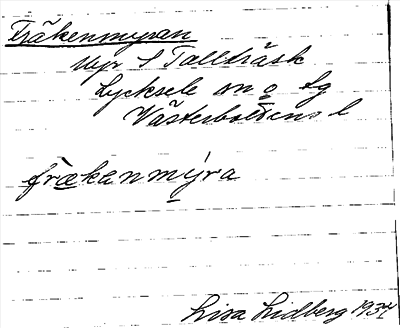 Fräkenmyran
Myr S Tallträsk
Lycksele sn o lg
Västerbottens l
frækenmýra
Lisa Lidberg 1934